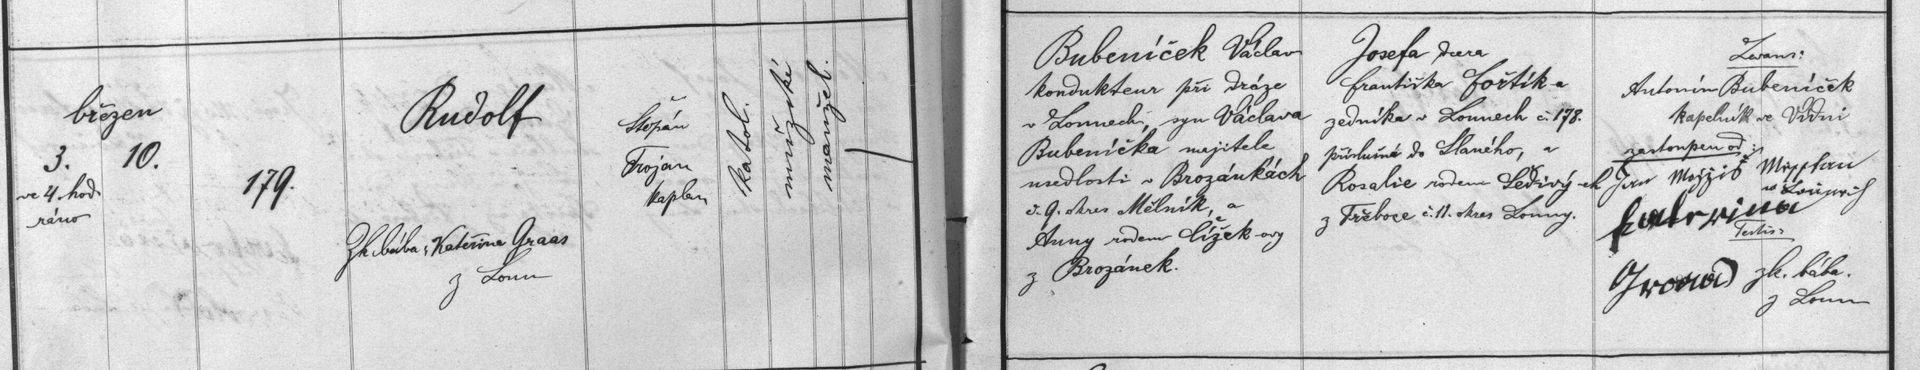 březen
3. 10.
ve 4. hod
ráno
179.
Rudolf
Zk. bába: Kateřina Graas
z Loun
Štěpán
Trojan
kaplan
katol.
mužské
manžel.
Bubeníček Václav
kondukteur při dráze
v Lounech, syn Václava
Bubeníčka majitele
usedlosti v Brozánkách
č. 9. okres Mělník, a
Anny rodem Čížek-ovy
z Brozánek.
Josefa dcera
Františka Fořtík-a
zedníka v Lounech č. 178.
příslušná do Slaného, a
Rosalie rodem Šedivý-ch
z Třeboce č. 11. okres Louny.
Levans:
Antonín Bubeníček
kapelník ve Vídni
zastoupen od:
Jan
Kateřina
Testis:
zk. bába.
z Loun